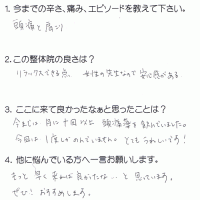 1. 今までの辛さ、痛み、エピソードを教えて下さい。
頭痛と肩こり
2. この整体院の良さは？
リラックスできる点、女性の先生なので安心感がある
3. ここに来て良かったなぁと思ったことは？
今までは月に十回以上頭痛薬を飲んでいました。
今回は1度しかのんでいません。とてもうれしいです！
4. 他に悩んでいる方へ一言お願いします。
もっと早く来れば良かったな…と思っています。
ぜひ！おすすめします。